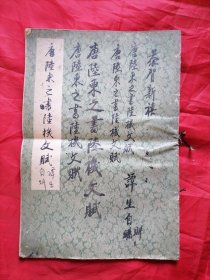 恭賀新禧
唐陸柬之書陸機文賦
唐陸柬之書陸機文賦
唐陸柬之書陸機文賦
唐陸柬之書陸機文賦
唐陸柬之書陸機文賦
生自